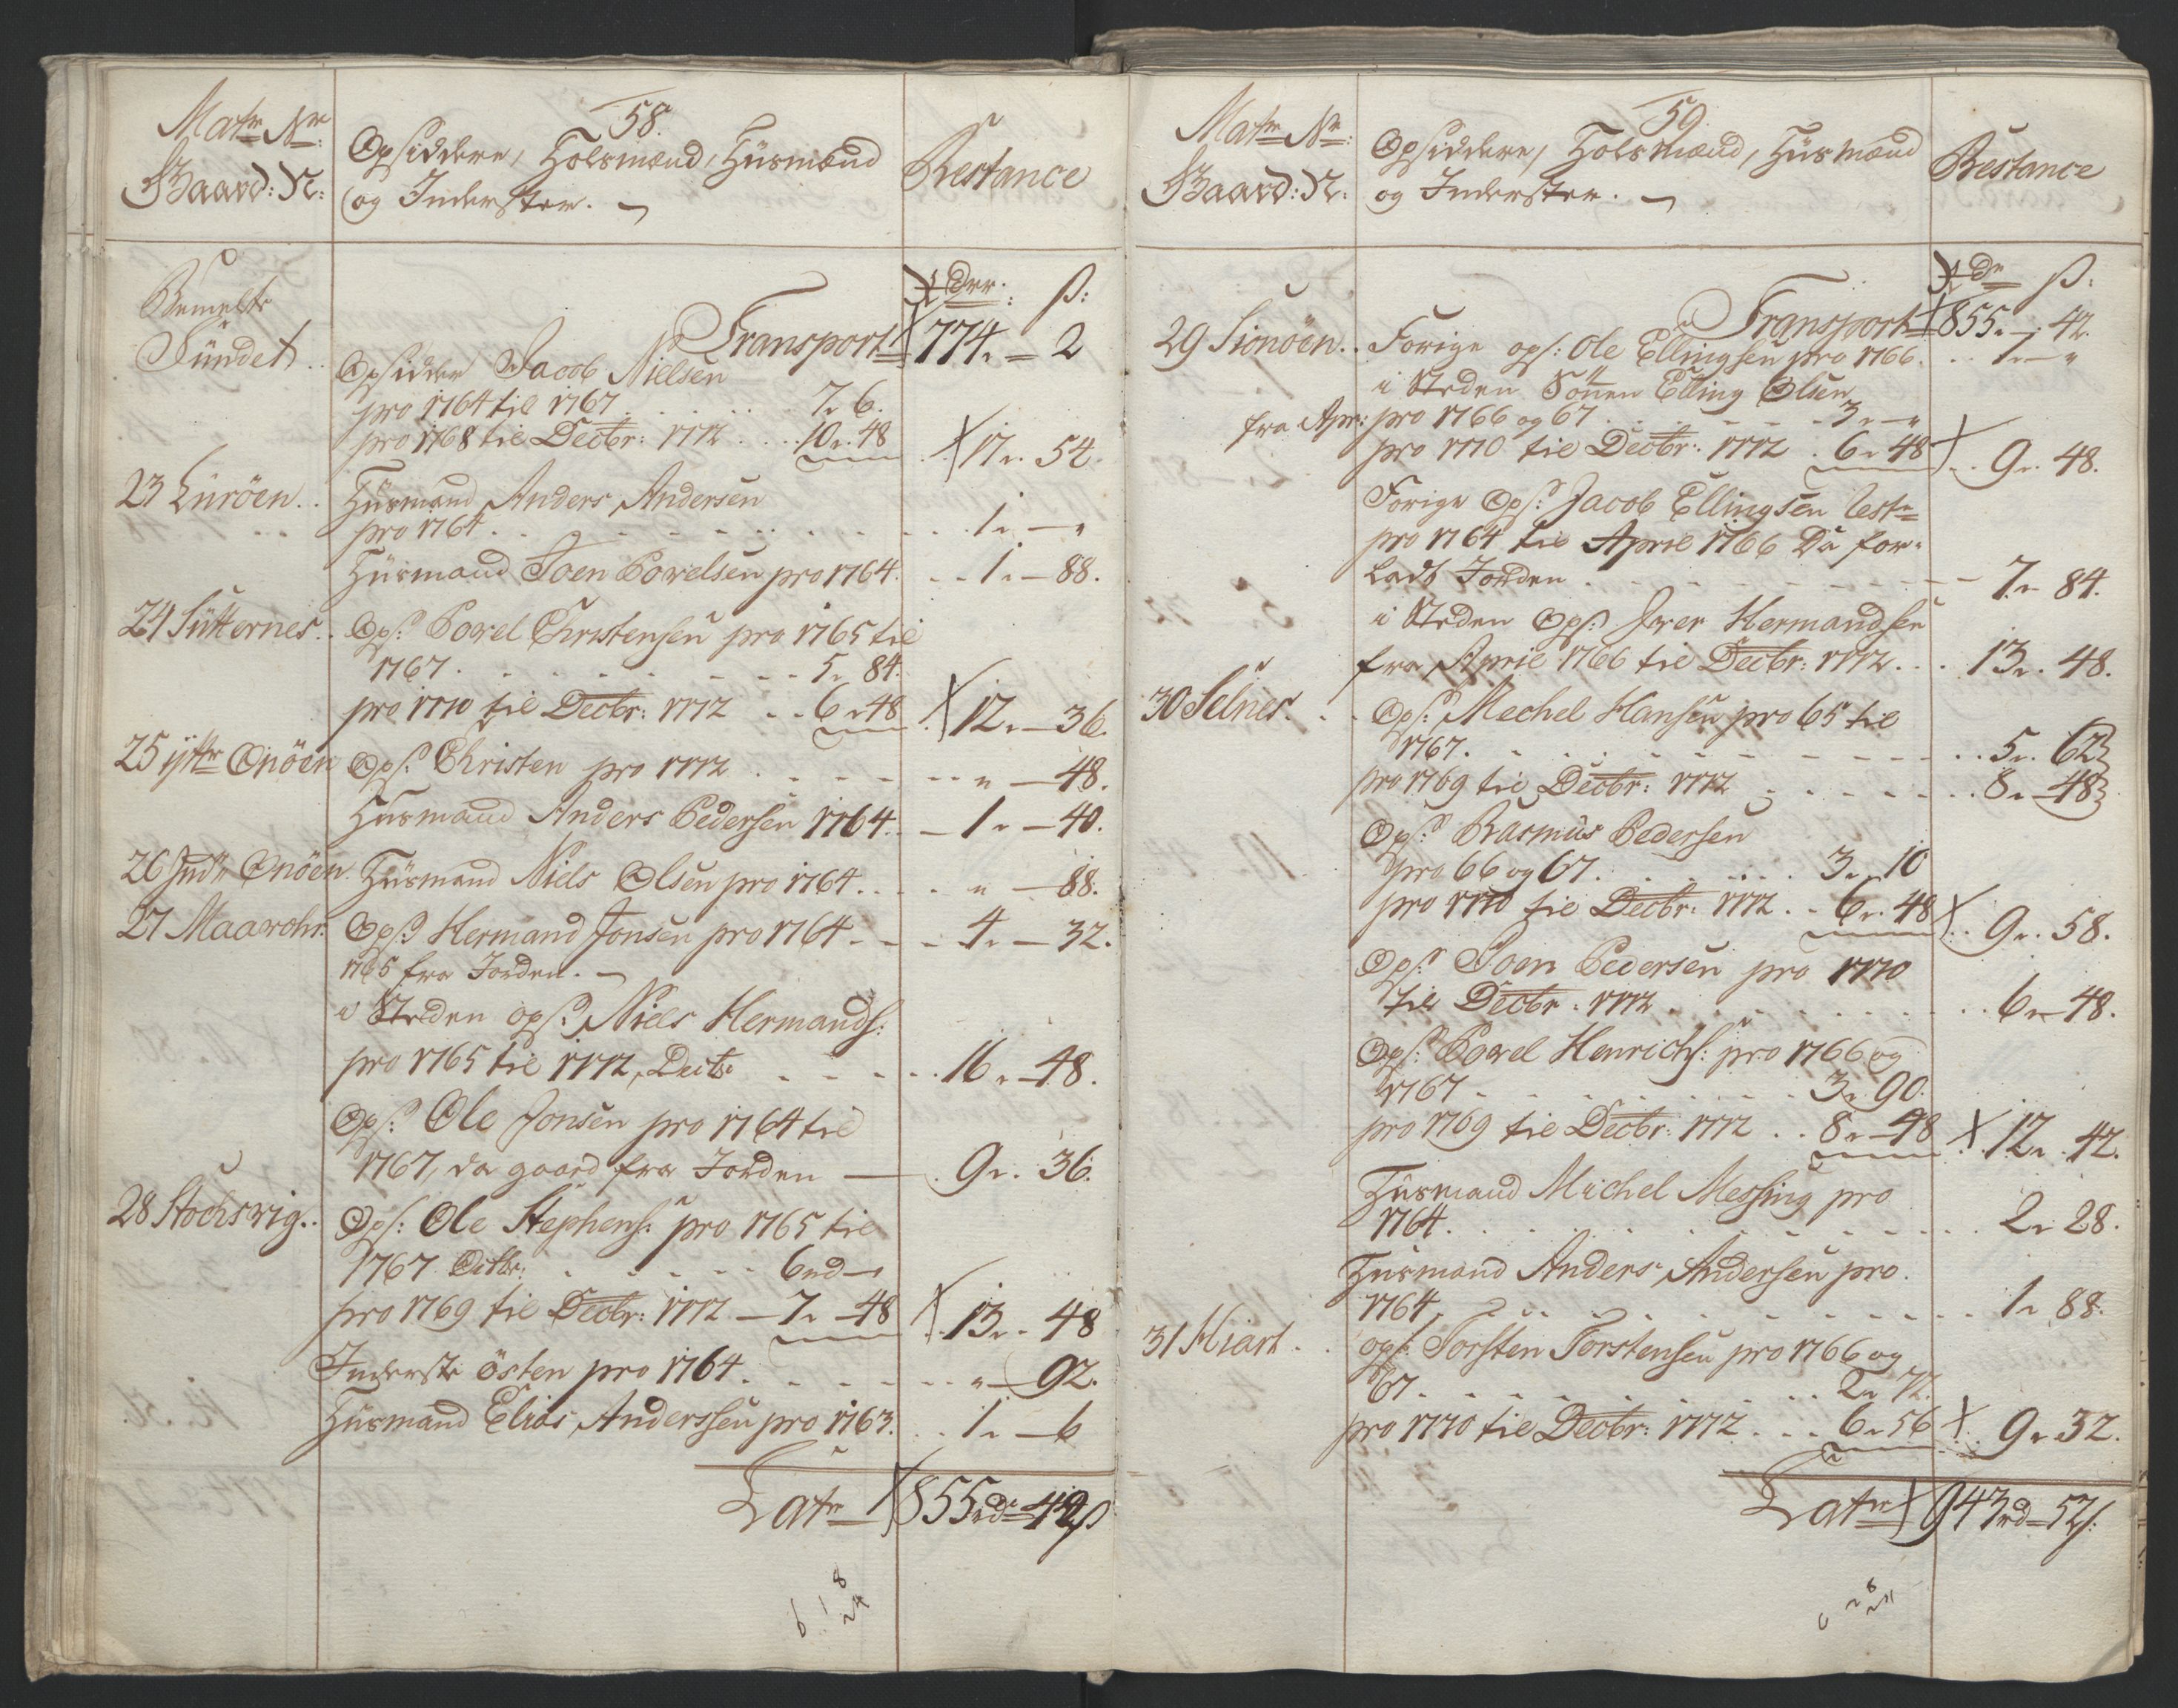 58.
Matr Nr:
Gaard: N:
Opsiddere, Holsmænd, Hüsmænd
og Inderster.
Restance
Bemelte
Sündet
Rdr: ß:
Transport 774. - 2
Opsidder Jacob Nielsen
pro 1764 til 1767 . . . 7. 6.
pro 1768 til Decbr: 1772 . . . 10. 48 17. 54.
23 Luröen . . Hüsmand Anders Andersen
pro 1764 . . . 1. - "
Hüsmand Joen Powelsen pro 1764 . . 1. - 88.
24 Sütternes . . Ops: Powel Christensen pro 1765 til
1767 . . . 5. 84.
pro 1770 til Decbr: 1772 . . 6. 48 12. - 36.
25 ytr Onöen Ops: Christen pro 1772 . . . " - 48.
Hüsmand Anders Pedersen 1764 . - 1. - 40.
26 Indr Onöen Hüsmand Niels Olsen pro 1764 . . . " - 88.
27 Maar Ops: Hermand Jonsen pro 1764 . . . 4. - 32.
1765 fra Jorden. -
i Steden ops: Niels Hermands:
pro 1765 til 1772, Decbr . . . 16. - 48.
Ops: Ole Jonsen pro 1764 til
1767, da gaard fra Jorden — 9. 36.
28 Stochsvig . . Ops: Ole Stephens: pro 1765 til
1767 Ditbr: . . . 6rd -
pro 1769 til Decbr: 1772 - 7. - 48 13. - 48
Inderste östen pro 1764 . . . " - 92.
Hüsmand Elias Anderssen pro 1763 . . 1. - 6
Latr 855rd - 42ß
6 1 8
24
59.
Matr Nr:
Gaard: N:
Opsiddere, Holsmænd, Hüsmænd
og Inderster.
Restance
Rdr ß:
Transport 855. - 42.
29 Sionöen . . Forige ops: Ole Ellingsen pro 1766 . . 1. - "
i Steden Sönnen Elling Olsen
fra Apr: pro 1766 og 67 . . . 3. - "
pro 1770 til Decbr: 1772 . 6. 48 9. 48.
Forige Ops: Jacob Ellingsen Rest
pro 1764 til April 1766 Da for-
Ladt Jorden . . . 7. 84.
i Steden Ops: Iver Hermandsen
fra April 1766 til Decbr: 1772 . . 13. 48.
30 Selnes . . . Ops: Mechel Hansen pro 65 til
1767 . . . 5. 62
pro 1769 til Decbr: 1772 . . . 8. 48
Ops: Rasmus Pedersen
pro 66 og 67 . . . 3. 10
pro 1770 til Decbr: 1772 . . 6. 48 9. 58.
Ops: Joen Pedersen pro 1770
til Decbr: 1772 . . . 6. 48.
Ops: Powel Henrichs: pro 1766 og
1767 . . . 3. 90.
pro 1769 til Decbr: 1772 . . 8. 48 12. 42.
Hüsmand Michel Messing pro
1764 . . . 2. 28.
Hüsmand Anders Andersen pro
1764 . . . 1. 88.
31 Hiart . . ops: Torsten Torstensen pro 1766 og
67 . . . 2. 72.
pro 1770 til Decbr: 1772 . . . 6. 56 9. 32.
Latr 943rd - 52ß.